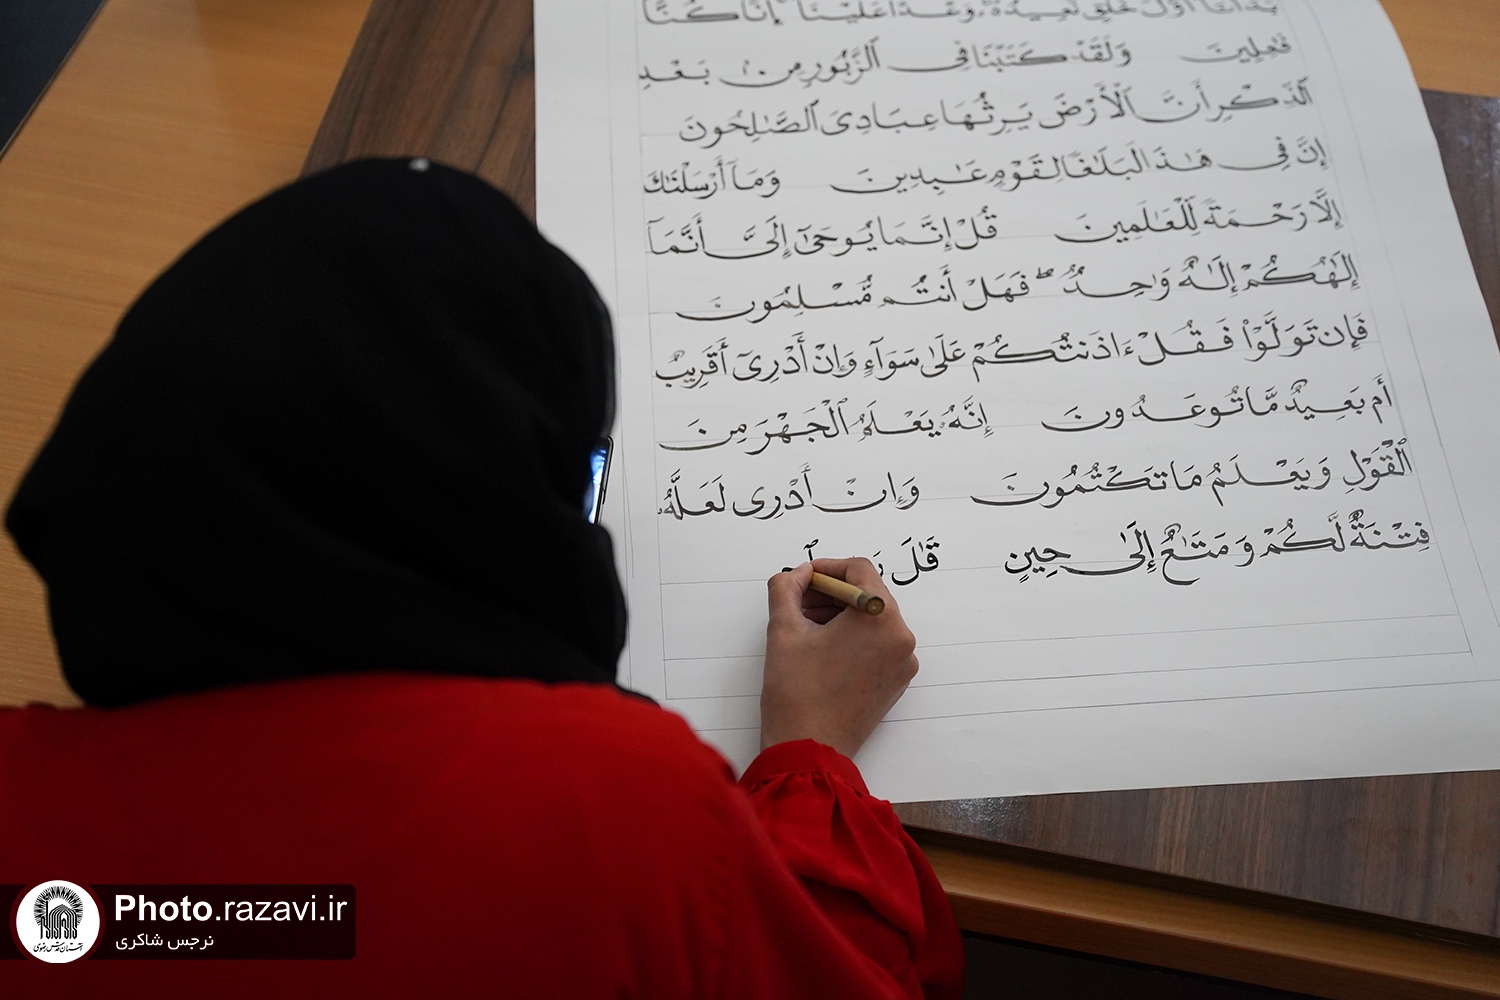 بَدَأْنَآ أَوَّلَ خَلْقٍ نُّعِيدُهُۥ وَعْدًا عَلَيْنَآ إِنَّا كُنَّا
فَـٰعِلِينَ وَلَقَدْ كَتَبْنَا فِى ٱلزَّبُورِ مِنۢ بَعْدِ
ٱلذِّكْرِ أَنَّ ٱلْأَرْضَ يَرِثُهَا عِبَادِىَ ٱلصَّـٰلِحُونَ
إِنَّ فِى هَـٰذَا لَبَلَـٰغًا لِّقَوْمٍ عَـٰبِدِينَ وَمَآ أَرْسَلْنَـٰكَ
إِلَّا رَحْمَةً لِّلْعَـٰلَمِينَ قُلْ إِنَّمَا يُوحَىٰٓ إِلَىَّ أَنَّمَآ
إِلَـٰهُكُمْ إِلَـٰهٌ وَٰحِدٌ ۖ فَهَلْ أَنتُم مُّسْلِمُونَ
فَإِن تَوَلَّوْا۟ فَقُلْ ءَاذَنتُكُمْ عَلَىٰ سَوَآءٍ وَإِنْ أَدْرِىٓ أَقَرِيبٌ
أَم بَعِيدٌ مَّا تُوعَدُونَ إِنَّهُۥ يَعْلَمُ ٱلْجَهْرَ مِنَ
ٱلْقَوْلِ وَيَعْلَمُ مَا تَكْتُمُونَ وَإِنْ أَدْرِى لَعَلَّهُۥ
فِتْنَةٌ لَّكُمْ وَمَتَـٰعٌ إِلَىٰ حِينٍ قَـٰلَ
Photo.razavi.ir
نرجس شاکری
آستان قدس رضوی